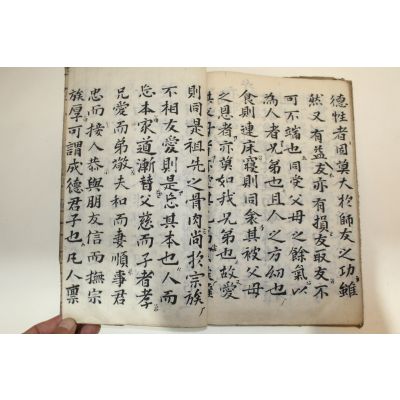 德性者固莫大扵師友之功雖
然又有益友亦有損友取友不
可不端也同受父母之餘氣以
爲人者兄弟也且人之方幼也
食則連床寢則同衾其被父母
之恩者亦莫如我兄弟也故愛
則同是祖先之骨肉尚扵宗族
不相友愛則是忘其本也人而
忘本家道漸替父慈而子者孝
兄愛而弟敬夫和而妻順事君
忠而接人恭與朋友信而撫宗
族厚可謂成德君子也凡人稟